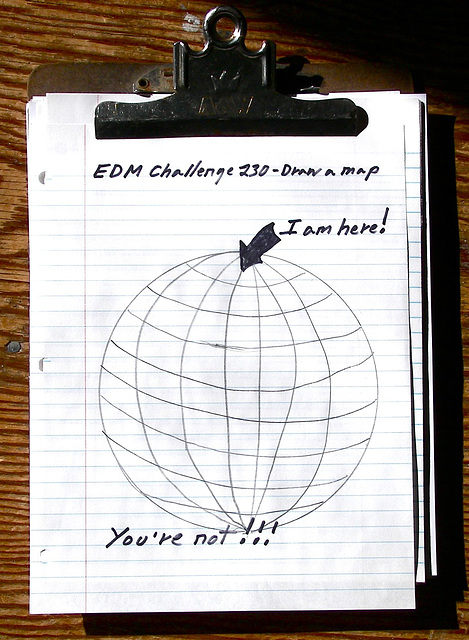 EDM Challenge 230-Draw a map
I am here!
You're not !!!